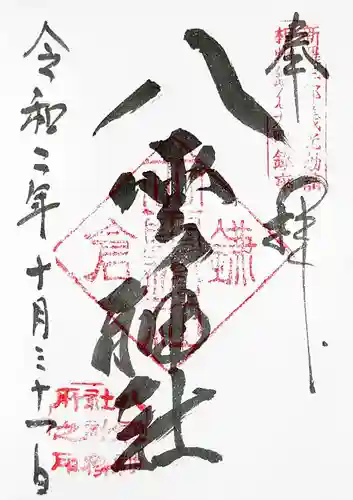 奉拝
八雲神社
鎌倉
八雲神社社務所之印
令和二年十月三十一日